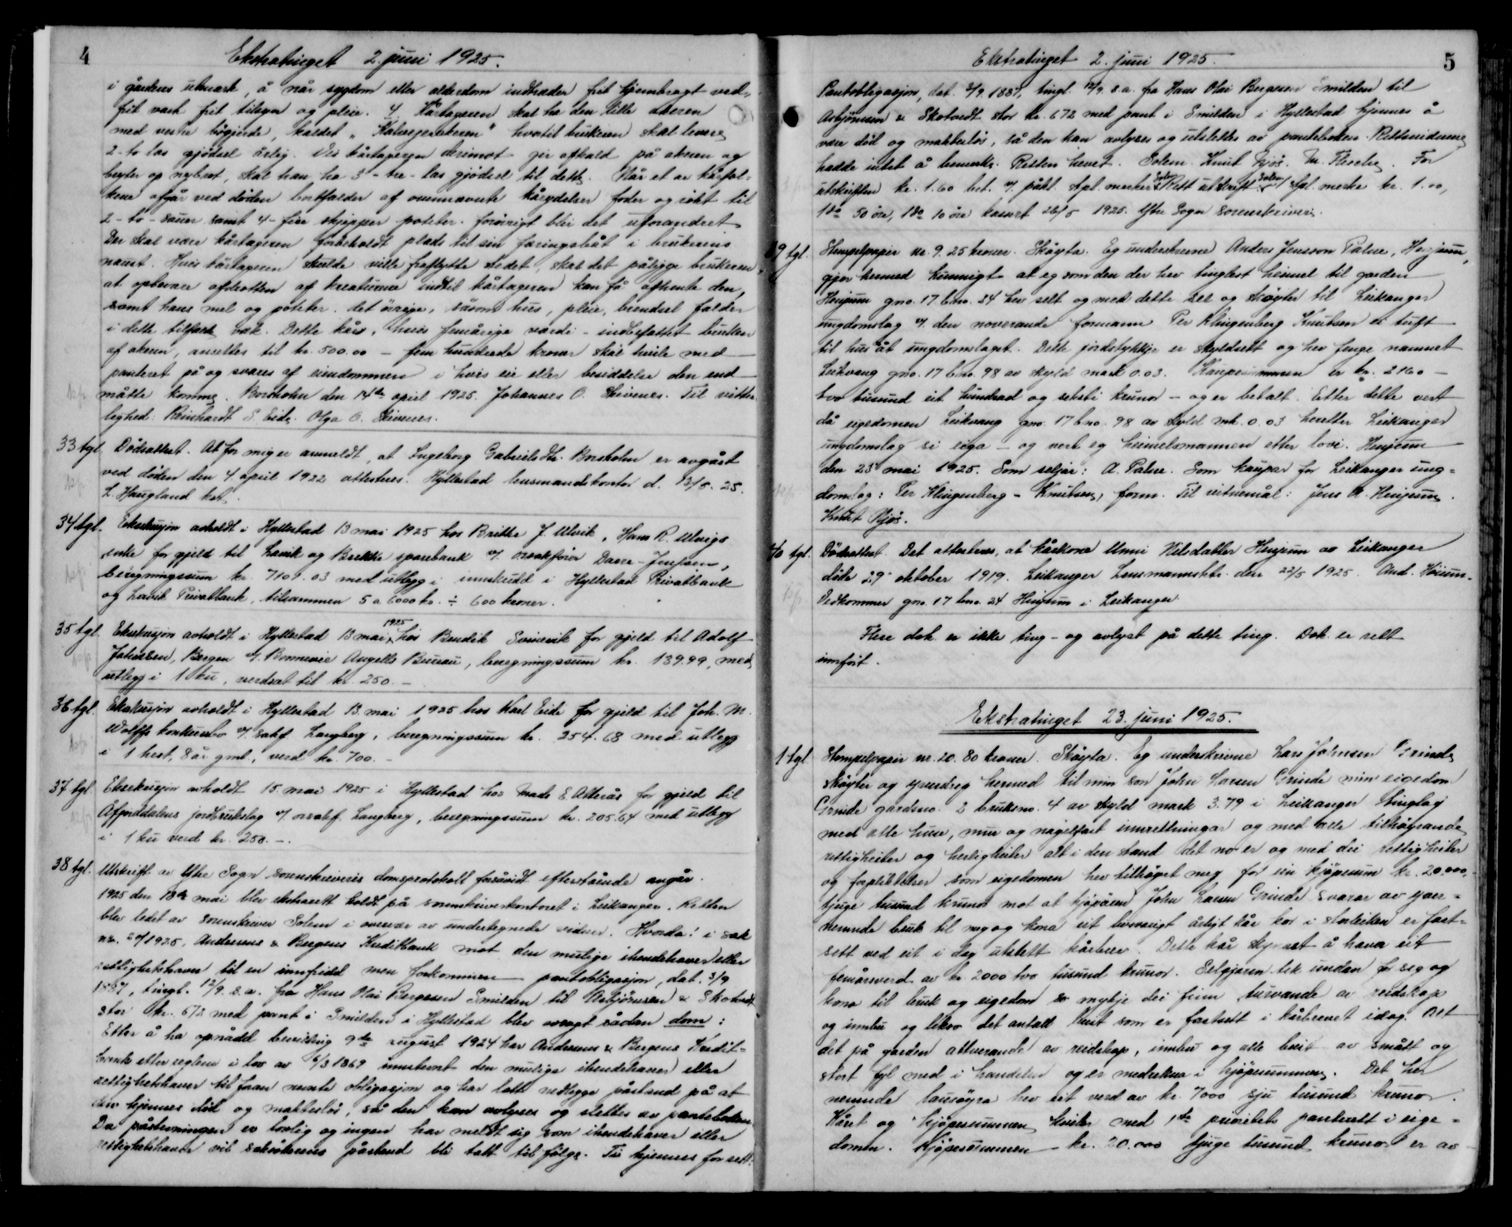 4
Ekstratinget 2. juni 1925.
i gårdens utmark, å når sygdom eller alderdom indtræder frit hjembragt ved,
frit vask frit tilsyn og pleie. 4/ Kårtageren skal ha den lille akeren
med vern høgjorde, kaldet "Kalvegjerakeren" hvortil brukeren skal levere
2-to las gjødsel årlig. Vis kårtageren derimot gir avkald på akeren og
bryter op nybrot, skal han ha 3-tre- las gjødsel til dette. Når et av kårfol-
kene afgår ved døden bortfalder af ovennævnte kårydelser foder og røkt til
2-to- sauer samt 4-fire skjæpper poteter. forøvrigt blir det uforandret
Der skal være kårtageren forbeholdt plads til sin færingsbåt i brukerens
naust. Hvis kårtageren skulde ville fraflytte stedet, skal det påligge brukeren
at opbevare afdrotten af kreaturerne indtil kårtageren kan få afhente den,
samt hans mel og poteter. det øvrige, såsom hus, pleie, brændsel falder
i dette tilfælde bort. Dette kårs, hvis femårige værdi - indbefattet bruken
af akeren, ansettes til kr. 500.00 - fem hundrede kroner skal hvile med
panteret på og svares af eiendommen i hvis eie eller besiddelse den end
måtte komme. Borsholm den 14de april 1925. Johannes O. Skivenes. Til vitter-
lighed. Reinhardt S Eide. Olga O. Skivenes.
33 tgl. Dødsattest. At for mig er anmeldt, at Ingeborg Gabrielsdtr. Borsholm er avgået
ved døden den 4 april 1922 attesteres. Hyllestad lensmandskontor d. 13/5. 25.
L Haugland kst.
34 tgl. Eksekusjon avholdt i Hyllestad 13 mai 1925 hos Brithe J. Ulvik, Hans R. Ulviqs
enke for gjeld til Lavik og Brekke sparebank v/ overretssakfører Daae-Jensen,
beregningssum kr. 7109.03 med utlegg i innskudd i Hyllestad Privatbank
og Lavik Privatbank, tilsammen 5 a 6000 kr. ÷ 600 kroner.
35 tgl. Eksekusjon avholdt i Hyllestad 13 mai 1925 hos Bendik Sørensvik for gjeld til Adolf
Johansen, Bergen v/ Bonnevie Angells Bureau, beregningssum kr. 139.99, med
utlegg i 1 ku, verdsat til kr. 250.-
36 tgl. Eksekusjon avholdt i Hyllestad 13 mai 1925 hos Karl Eide for gjeld til Joh. M.
Wolffs konkursbo v/ sakf. Langberg, beregningssum kr. 254.68 med utlegg
i 1 hest, 8 år gml., verd kr. 700.-
37 tgl. Eksekusjon avholdt 15 mai 1925 i Hyllestad hos Mads E Atterås for gjeld til
Afjorddalens jordbrukslag v/ orsakf. Langberg, beregningssum kr. 205.64 med utlegg
i 1 ku verd kr. 250.-.
38 tgl. Utskrift av Ytre Sogn sorenskriveris domsprotokoll forsåvidt efterstående angår.
1925 den 18de mai blev ekstrarett holdt på sorenskriverkontoret i Leikanger. Retten
blev ledet av sorenskriver Solem i overvær av undertegnede vidner. Hvorda: i sak
nr. 27/1925, Andresens & Bergens Kreditbank mot den mulige ihendehaver eller
rettighetshaver til en innfridd men forkommen pantobligasjon, dat. 3/9
1887, tingl. 12/9 s.a. fra Hans Olai Bergesen Smilden til Asbjørnsen & Skotvedt,
stor kr. 672 med pant i Smilden i Hyllestad blev avsagt sådan dom:
Etter å ha opnådd bevilling 9de august 1924 har Andresens & Bergens Kredit-
bank etter reglene i lov av 6/3 1869 innstevnt den mulige ihendehaver eller
rettighetshaver til foran nevnte obligasjon og har latt nedlegge påstand på at
den kjennes død og maktesløs, så den kan avlyses og slettes av panteboken
Da påstevningen er lovlig og ingen har meldt sig som ihendehaver eller
rettighetshaver vil saksøkerens påstand bli tatt til følge. Ti kjennes for rett:
5
Ekstratinget 2. juni 1925.
Pantobligasjon, dat. 3/9 1887, tingl. 12/9 s.a. fra Hans Olai Bergesen Smilden til
Asbjørnsen & Skotvedt stor kr. 672 med pant i Smilden i Hyllestad kjennes å
være død og maktesløs, så den kan avlyses og utslettes av panteboken. Rettsvidnene
hadde intet å bemerke. Retten hevet. Solem. Knut Njøs. M. Floreliq. For
utskriften kr. 1.60 bet. v/ påkl. stpl. merker Solem Rett utskrift Solem/ stpl. merke kr. 1.00,
1 do 50 øre, 1 do 10 øre kassert 22/5 1925. Ytre Sogn sorenskriveri.
39 tgl. Stempelpapir kr. 9.25 kroner. Skøyte. Eg underskrivne Anders Jensson Patrce, Henjum,
gjer hermed kunnigt at eg som den der hev tinglest heimel til garden
Henjum gno. 17 bno. 24 hev selt og med dette sel og skøyter til Leikanger
ungdomslag v/ den noverande formann Per Klingenberg Knutsen ei tuft
til hus åt ungdomslaget. Dette jordstykkje er skyldsett og hev fenge namnet
Leikvang gno. 17 bno. 98 av skyld mark 0.03. Kaupesummen er kr. 2160 -
tvo tusund eit hundrad og seksti krunor - og er betalt. Etter dette vert
då eigedomen Leikvang gno. 17 bno. 98 av skyld mk. 0.03 heretter Leikanger
ungdomslag si eiga - og vert eg heimelsmannen etter lovi. Henjum
den 23de mai 1925. Som seljar: A. Patrce. Som kaupar for Leikanger ung-
domslag: Per Klingenberg-Knutsen, form. Til vitnemål: Jens A. Henjum.
Knut Njøs.
40 tgl. Dødsattest. Det attesteres, at kårkone Unni Nilsdatter Henjum av Leikanger
døde 29 oktober 1919. Leikanger Lensmannsktr. den 22/5 1925. And. Husum.
Vedkommer gno. 17 bno. 24 Henjum i Leikanger
Flere dok er ikke ting- og avlyst på dette ting. Dok er rett
innført.
Ekstratinget 23. juni 1925.
1 tgl. Stempelpapir nr. 20. 80 kroner. Skøyta. Eg underskrivne Lars Johnsen Grinde
skøyter og yverdreg hermed til min son John Larsen Grinde min eigedom
Grinde gardsno. 3 bruksno. 4 av skyld mark 3.79 i Leikanger tinglag
med alle huse, mur og nagelfast innrettningar og med alle tilhøyrande
rettigheiter og herligheiter alt i den stand det no er og med dei rettigheiter
og forpliktelser som eigedomen hev tilhøyrt meg for ein kjøpesum kr. 20.000,
tjuge tusund krunor mot at kjøparen John Larsen Grinde svarar av yver-
nemnde bruk til meg og kona eit livsvarigt årligt kår kor i storleiken er fast-
sett ved eit i dag utstedt kårbrev. Dette kår skyrast å hava eit
femårsverd av kr 2000 tvo tusund krunor. Seljaren tek undan for seg og
kona til bruk og eigedom so mykje dei finn turvande av reidskap
og innbu og likeso det antall krist som er fastsett i kårbrevet idag. Alt
det på garden attverande av reidskap, innbu og alle beist av smått og
stort fyl med i handelen og er medrekna i kjøpesummen. Det her
nemnde lausøyra hev eit verd av kr. 7000 sju tusund krunor.
Kåret og kjøpesummen kviler med 1ste prioritets panterett i eige-
domen. Kjøpesummen - kr. 20.000 tjuge tusund krunor er av-